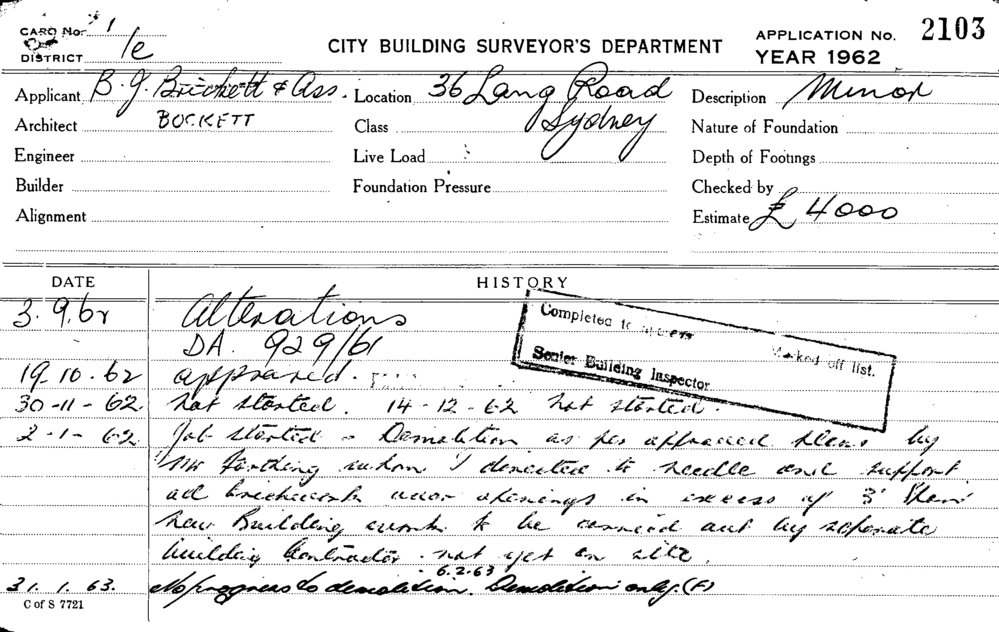 CARD No. 1
DISTRICT 1/e
CITY BUILDING SURVEYOR'S DEPARTMENT
APPLICATION No. 2103
YEAR 1962
Applicant B. J. Brickett & Ass. Location 36 Lang Road Description Minor
Architect BOCKETT Class Sydney Nature of Foundation
Engineer Live Load Depth of Footings
Builder Foundation Pressure Checked by
Alignment Estimate £ 4000
DATE HISTORY
3.9.62 Alterations
DA. 929/61
Completed to
Marked off list.
Senior Building Inspector
19.10.62 approved.
30-11-62. not started. 14-12-62 not started.
2-1-62 Job started - Demolition as per approved plans by
Mr Farthing whom I directed to needle and support
all brickwork over openings in excess of 3' then
new Building work to be carried out by seperate
building Contractor. not yet on site.
31.1.63. No progress to demolition. 6.2.63 Demolition only. (F)
C of S 7721